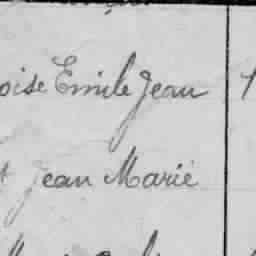 oise Emile Jean
t Jean Marie